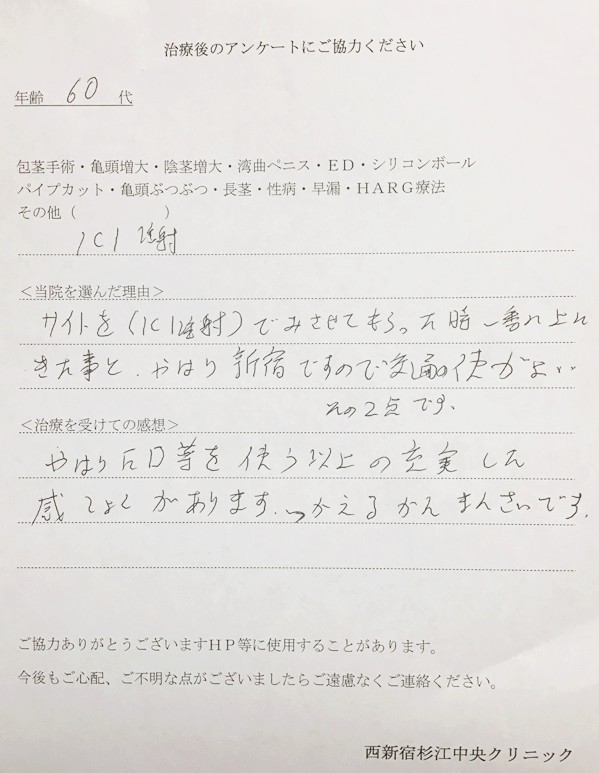 治療後のアンケートにご協力ください
年齢 60 代
包茎手術・亀頭増大・陰茎増大・湾曲ペニス・ED・シリコンボール
パイプカット・亀頭ぶつぶつ・長茎・性病・早漏・HARG療法
その他（ ）
ICI 注射
＜当院を選んだ理由＞
サイトを（ICI注射）でみさせてもらった時一番上に
きた事と、やはり新宿ですので交通の便がよい
その2点です。
＜治療を受けての感想＞
やはり 等を使う以上の充実した
感しょくがあります。つかえるかんまんさいです。
ご協力ありがとうございますHP等に使用することがあります。
今後もご心配、ご不明な点がございましたらご遠慮なくご連絡ください。
西新宿杉江中央クリニック